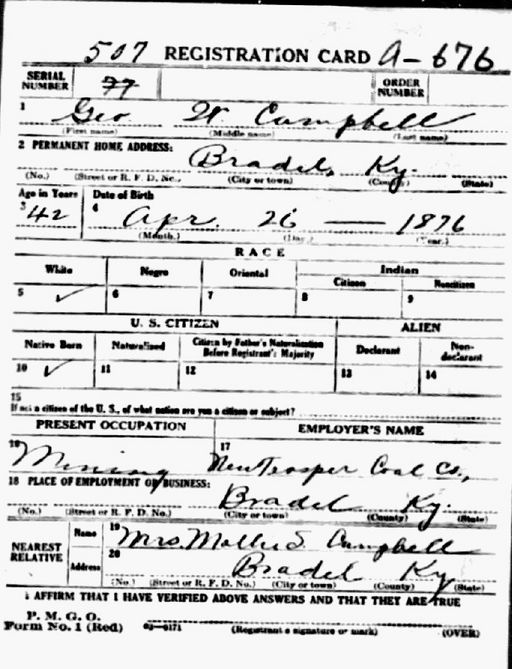 507 REGISTRATION CARD A-676
SERIAL NUMBER 77 ORDER NUMBER
1 Geo W Campbell
(First name) (Middle name) (Last name)
2 PERMANENT HOME ADDRESS:
Bradel, Ky.
(No.) (Street or R. F. D. No.) (City or town) (County) (State)
Age in Years Date of Birth
3 42 4 Apr. 26 — 1876
(Month.) (Day.) (Year.)
RACE
White Negro Oriental Indian
Citizen Noncitizen
5 ✓ 6 7 8 9
U. S. CITIZEN ALIEN
Native Born Naturalized Citizen by Father's Naturalization Before Registrant's Majority Declarant Non-declarant
10 ✓ 11 12 13 14
15
If not a citizen of the U. S., of what nation are you a citizen or subject?
PRESENT OCCUPATION EMPLOYER'S NAME
16 Mining 17 New Trosper Coal Co.,
18 PLACE OF EMPLOYMENT OR BUSINESS:
Bradel Ky.
(No.) (Street or R. F. D. No.) (City or town) (County) (State)
NEAREST RELATIVE Name 19 Mrs. Mollie S. Campbell
Address 20 Bradel Ky
(No.) (Street or R. F. D. No.) (City or town) (County) (State)
I AFFIRM THAT I HAVE VERIFIED ABOVE ANSWERS AND THAT THEY ARE TRUE
P. M. G. O.
Form No. 1 (Red) (Registrant's signature or mark) (OVER)